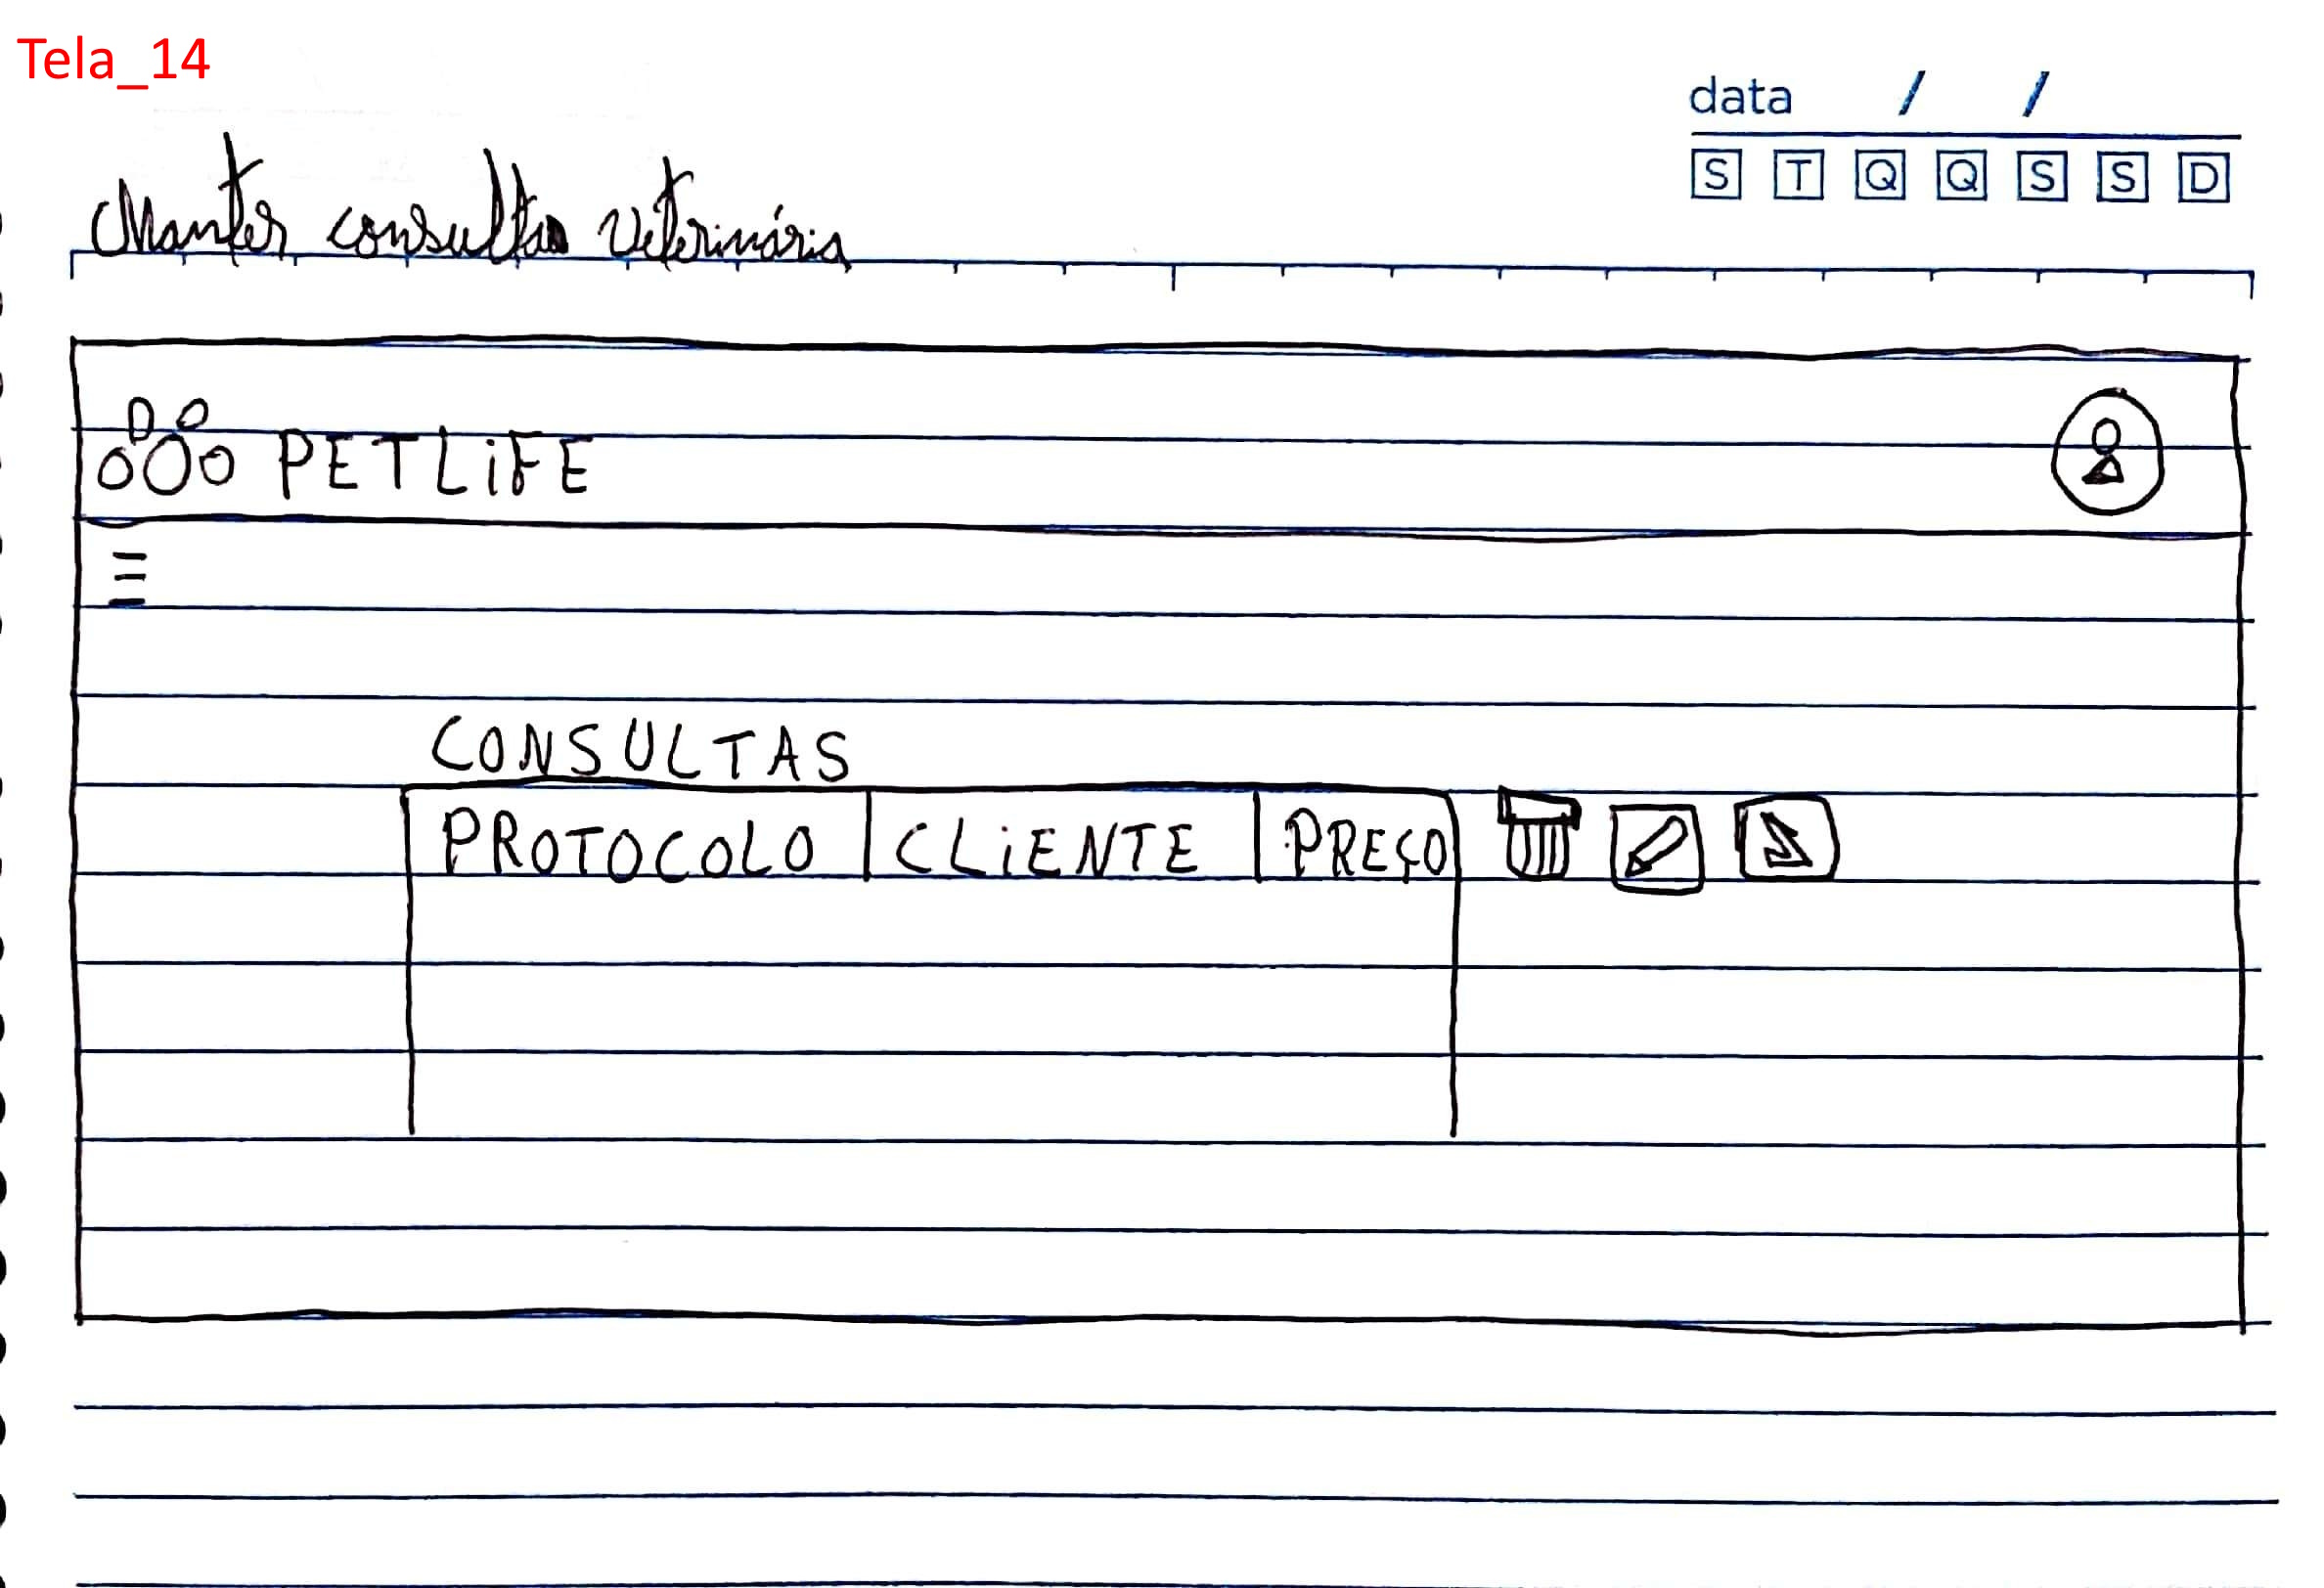 Tela_14
data / /
S T Q Q S S D
Manter consulta Veterinária
PETLiFE
CONSULTAS
PROTOCOLO CLiENTE PREÇO